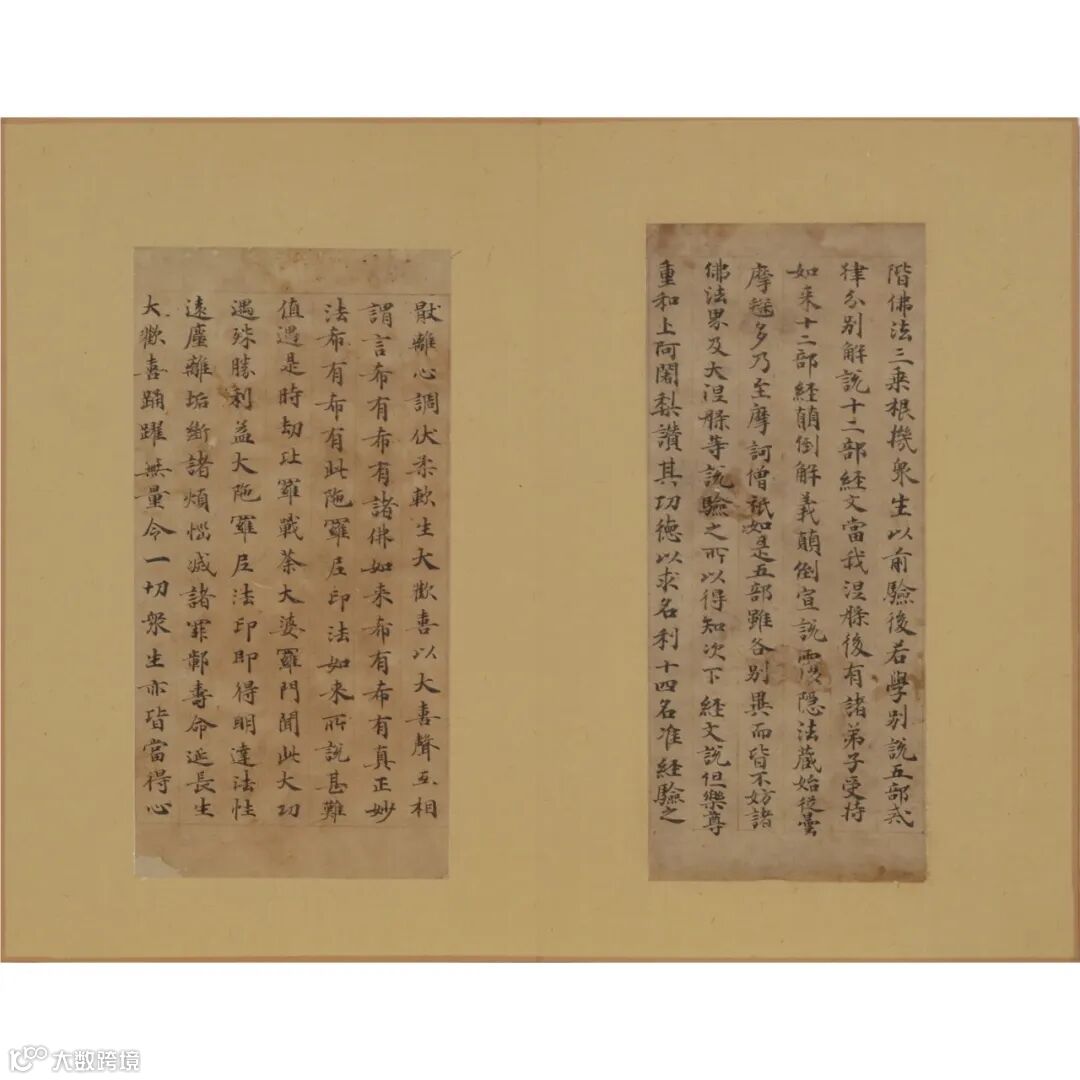 階佛法三乘根機衆生以前驗後若學別說五部
律分別解說十二部經文當我涅槃後有諸弟子受持
如来十二部經顛倒解義顛倒宣說覆隱法藏始從曇
摩毱多乃至摩訶僧祇如是五部雖各別異而皆不妨諸
佛法界及大涅槃等說驗之所以得知次下經文說但樂尊
重和上阿闍梨讚其功德以求名利十四名准經驗之
猒離心調伏柔軟生大歡喜以大喜聲互相
謂言希有希有諸佛如来希有希有真正妙
法希有希有此陁羅尼印法如来所說甚難
值遇是時劫比羅戰荼大婆羅門聞此大功
遇殊勝利益大陁羅尼法印即得明達法性
遠塵離垢断諸煩惱滅諸罪鄣壽命延長生
大歡喜踊躍無量令一切衆生亦皆當得心
大数跨境